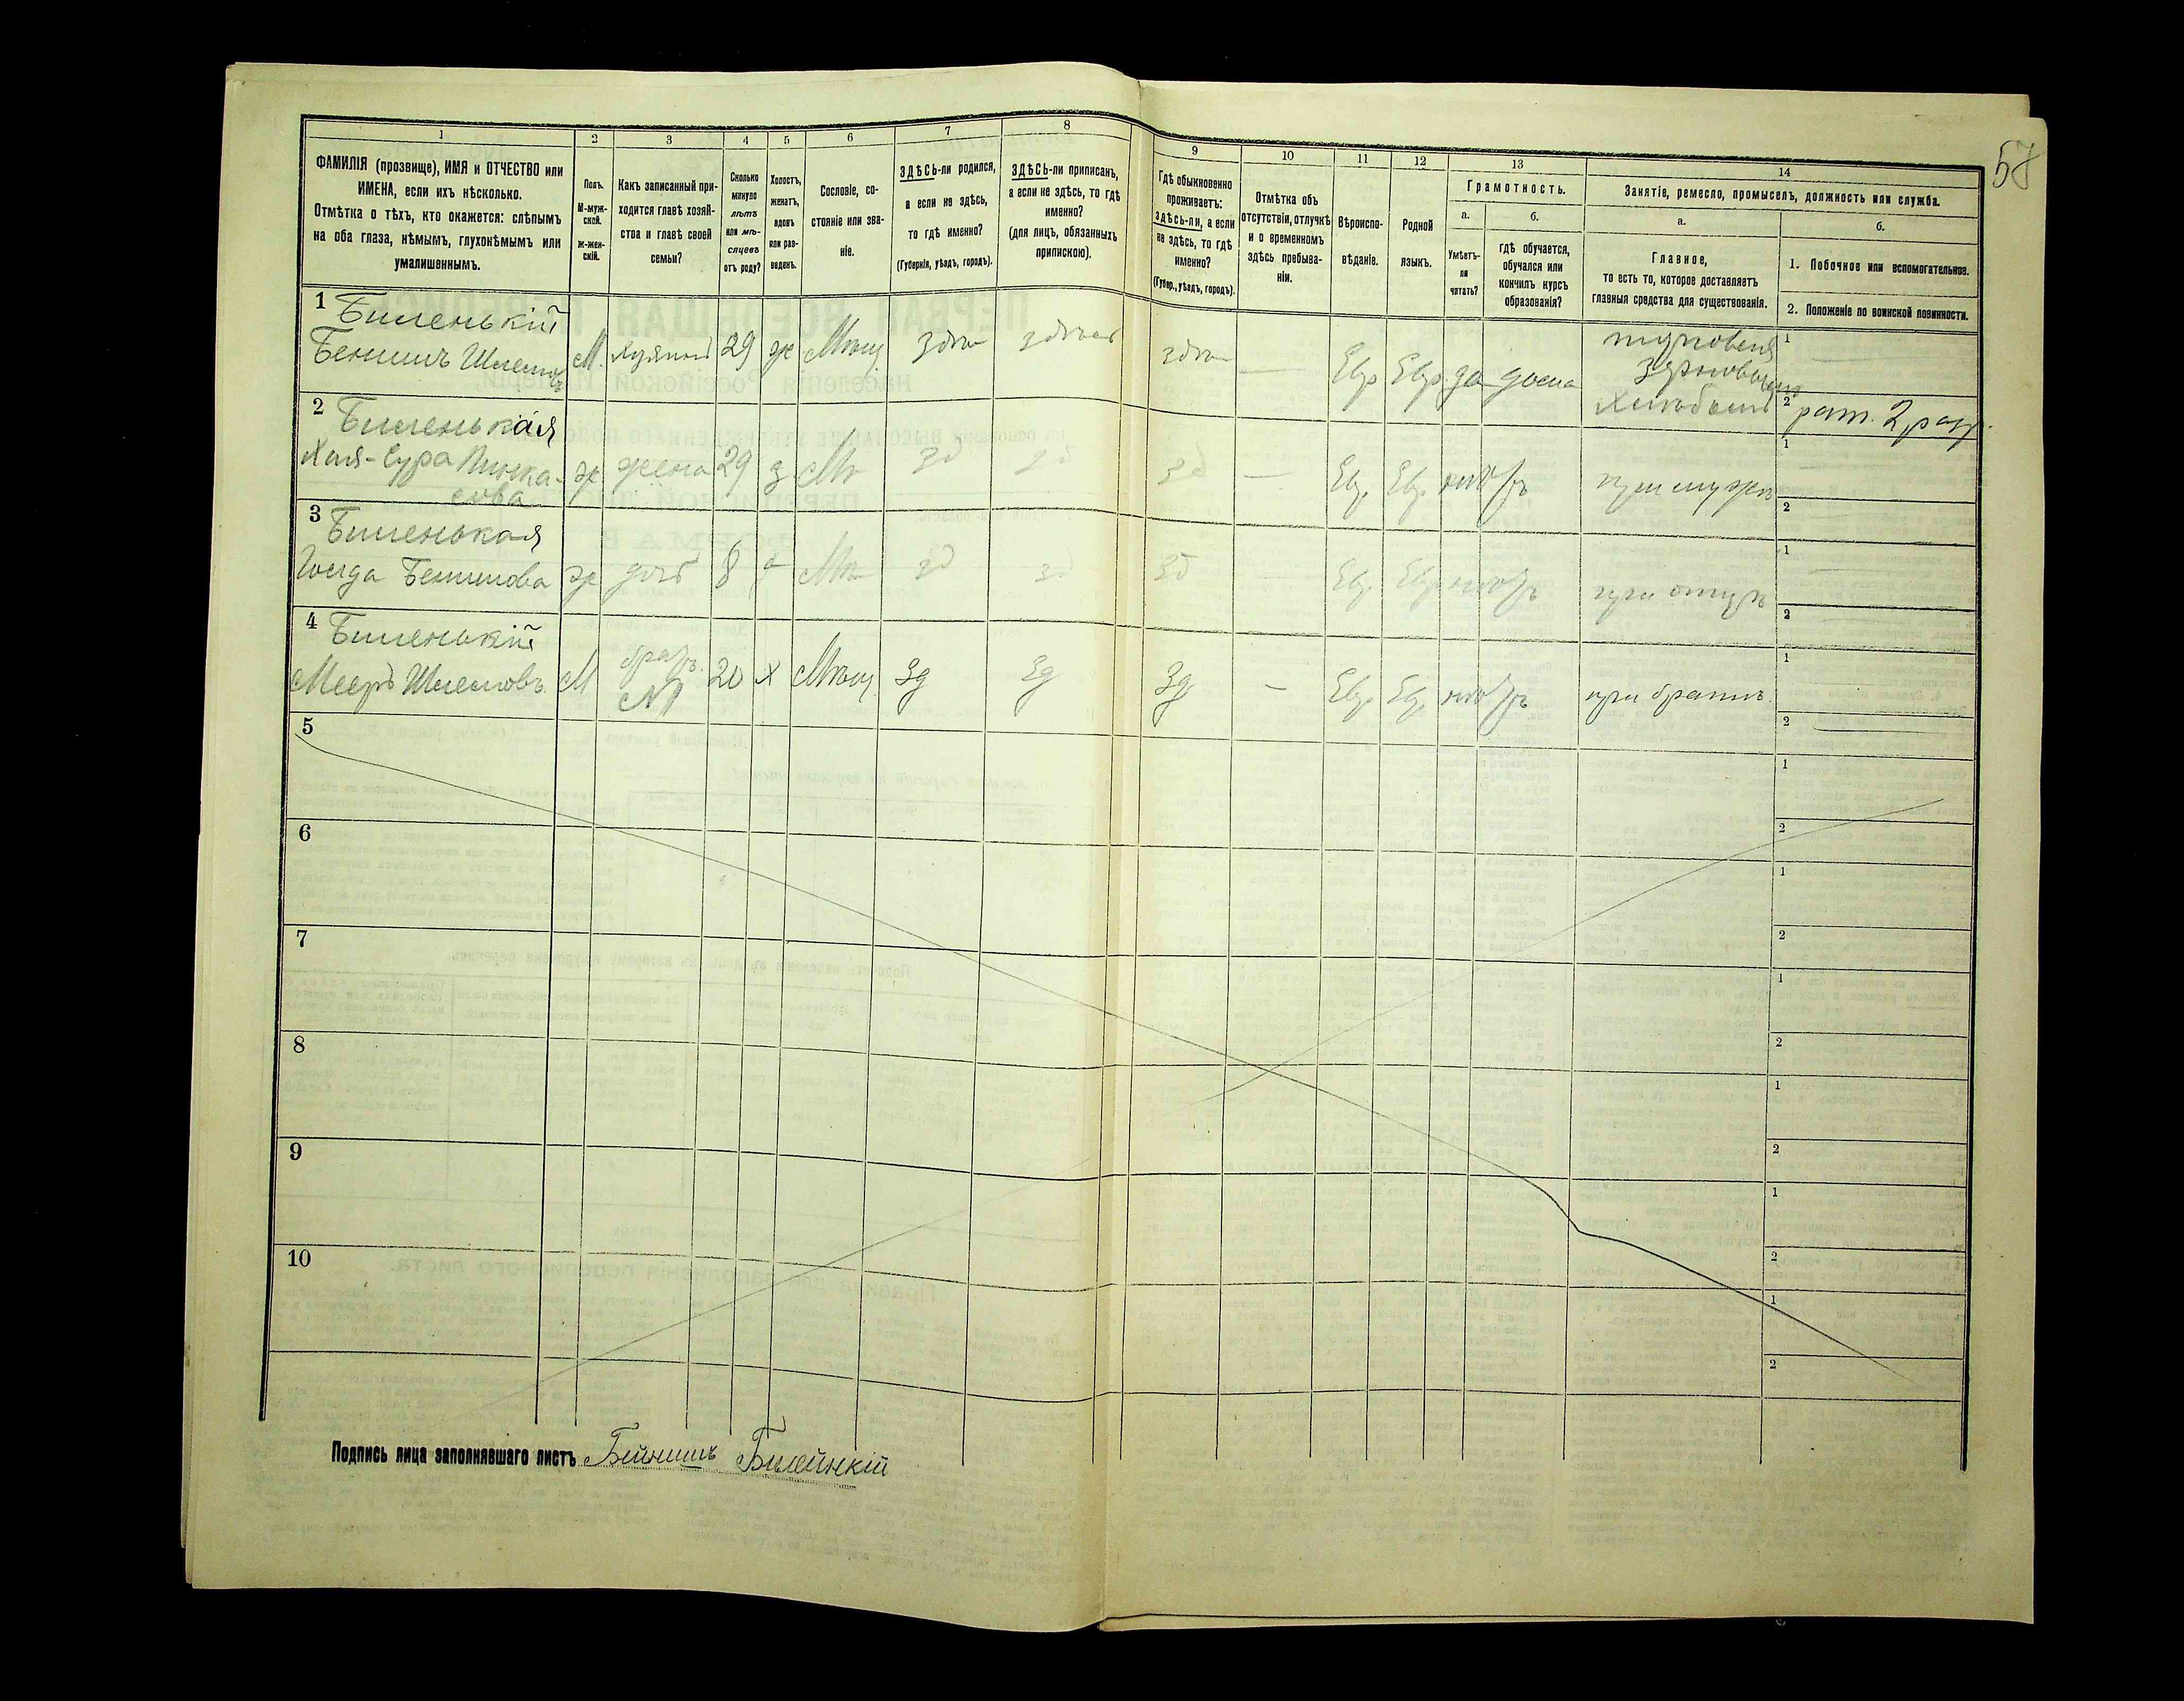 57
1 2 3 4 5 6 7 8 9 10 11 12 13 14
ФАМИЛІЯ (прозвище), ИМЯ и ОТЧЕСТВО или
ИМЕНА, если ихъ нѣсколько.
Отмѣтка о тѣхъ, кто окажется: слѣпымъ
на оба глаза, нѣмымъ, глухонѣмымъ или
умалишеннымъ.
Полъ.
М-муж-
ской.
ж-жен-
скій.
Какъ записанный при-
ходится главѣ хозяй-
ства и главѣ своей
семьи?
Сколько
минуло
лѣтъ
или мѣ-
сяцевъ
отъ роду?
Холостъ,
женатъ,
вдовъ
или раз-
веденъ.
Сословіе, со-
стояніе или зва-
ніе.
ЗДѢСЬ-ли родился,
а если не здѣсь,
то гдѣ именно?
(Губернія, уѣздъ, городъ).
ЗДѢСЬ-ли приписанъ,
а если не здѣсь, то гдѣ
именно?
(для лицъ, обязанныхъ
припискою).
Гдѣ обыкновенно
проживаетъ:
здѣсь-ли, а если
не здѣсь, то гдѣ
именно?
(Губер., уѣздъ, городъ).
Отмѣтка объ
отсутствіи, отлучкѣ
и о временномъ
здѣсь пребыва-
ніи.
Вѣроиспо-
вѣданіе.
Родной
языкъ.
Грамотность.
а.
Умѣетъ-
ли
читать?
б.
гдѣ обучается,
обучался или
кончилъ курсъ
образованія?
Занятіе, ремесло, промыселъ, должность или служба.
а.
Главное,
то есть то, которое доставляетъ
главныя средства для существованія.
б.
1. Побочное или вспомогательное.
2. Положеніе по воинской повинности.
1 Биленькій
Бениишъ Шлемовъ М. хозяинъ 29 ж Мѣщ здѣсь здѣсь здѣсь — Евр Евр да дома
торговецъ
зерновымъ
хлѣбомъ
1
2 рат. 2 разр.
2 Биленькая
Хая-Сура Пинка-
сова ж жена 29 з Мѣ зд зд зд — Евр. Евр. нѣтъ при мужѣ
1
2
3 Биленькая
Голда Бениишова ж дочь 8 д Мѣ зд зд зд Евр. Евр нѣтъ при отцѣ
1
2
4 Биленькій
Мееръ Шлемовъ М братъ
№1 20 х Мѣщ. Зд Зд Зд — Евр Евр нѣтъ при братѣ.
1
2
5
1
2
6
1
2
7
1
2
8
1
2
9
1
2
10
1
2
Подпись лица заполнявшаго листъ Бейнишъ Билейнкій